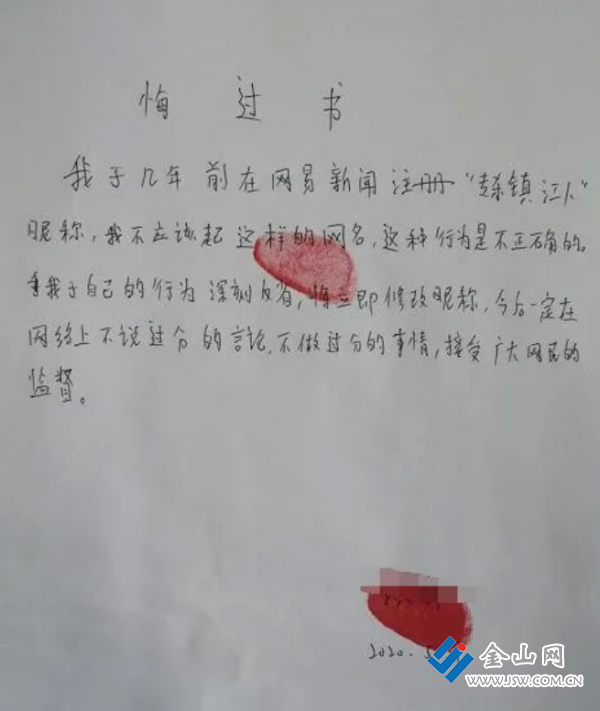 悔过书
我于几年前在网易新闻注册"操镇江人"
昵称，我不应该起这样的网名，这种行为是不正确的。
我于自己的行为深刻反省，将立即修改昵称，今后一定在
网络上不说过分的言论，不做过分的事情，接受广大网民的
监督。
2020.5
金山网
WWW.JSW.COM.CN